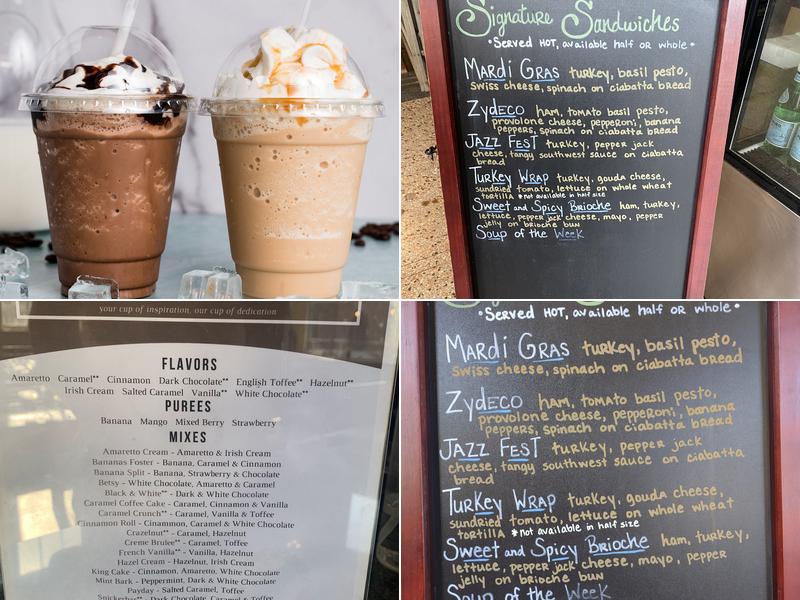 Signature Sandwiches
• Served HOT, available half or whole •
Mardi Gras turkey, basil pesto,
swiss cheese, spinach on ciabatta bread
Zydeco ham, tomato basil pesto,
provolone cheese, pepperoni, banana
peppers, spinach on ciabatta bread
Jazz Fest turkey, pepper jack
cheese, tangy southwest sauce on ciabatta
bread
Turkey Wrap turkey, gouda cheese,
sundried tomato, lettuce on whole wheat
tortilla *not available in half size
Sweet and Spicy Brioche ham, turkey,
lettuce, pepper jack cheese, mayo, pepper
jelly on brioche bun
Soup of the Week
your cup of inspiration, our cup of dedication
FLAVORS
Amaretto Caramel** Cinnamon Dark Chocolate** English Toffee** Hazelnut**
Irish Cream Salted Caramel Vanilla** White Chocolate**
PUREES
Banana Mango Mixed Berry Strawberry
MIXES
Amaretto Cream - Amaretto & Irish Cream
Bananas Foster - Banana, Caramel & Cinnamon
Banana Split - Banana, Strawberry & Chocolate
Betsy - White Chocolate, Amaretto & Caramel
Black & White** - Dark & White Chocolate
Caramel Coffee Cake - Caramel, Cinnamon & Vanilla
Caramel Crunch** - Caramel, Vanilla & Toffee
Cinnamon Roll - Cinammon, Caramel & White Chocolate
Crazelnut** - Caramel, Hazelnut
Creme Brulee** - Caramel, Toffee
French Vanilla** - Vanilla, Hazelnut
Hazel Cream - Hazelnut, Irish Cream
King Cake - Cinnamon, Amaretto, White Chocolate
Mint Bark - Peppermint, Dark & White Chocolate
Payday - Salted Caramel, Toffee
Snickerbar** - Dark Chocolate, Caramel & Toffee
• Served HOT, available half or whole •
Mardi Gras turkey, basil pesto,
swiss cheese, spinach on ciabatta bread
Zydeco ham, tomato basil pesto,
provolone cheese, pepperoni, banana
peppers, spinach on ciabatta bread
Jazz Fest turkey, pepper jack
cheese, tangy southwest sauce on ciabatta
bread
Turkey Wrap turkey, gouda cheese,
sundried tomato, lettuce on whole wheat
tortilla *not available in half size
Sweet and Spicy Brioche ham, turkey,
lettuce, pepper jack cheese, mayo, pepper
jelly on brioche bun
Soup of the Week